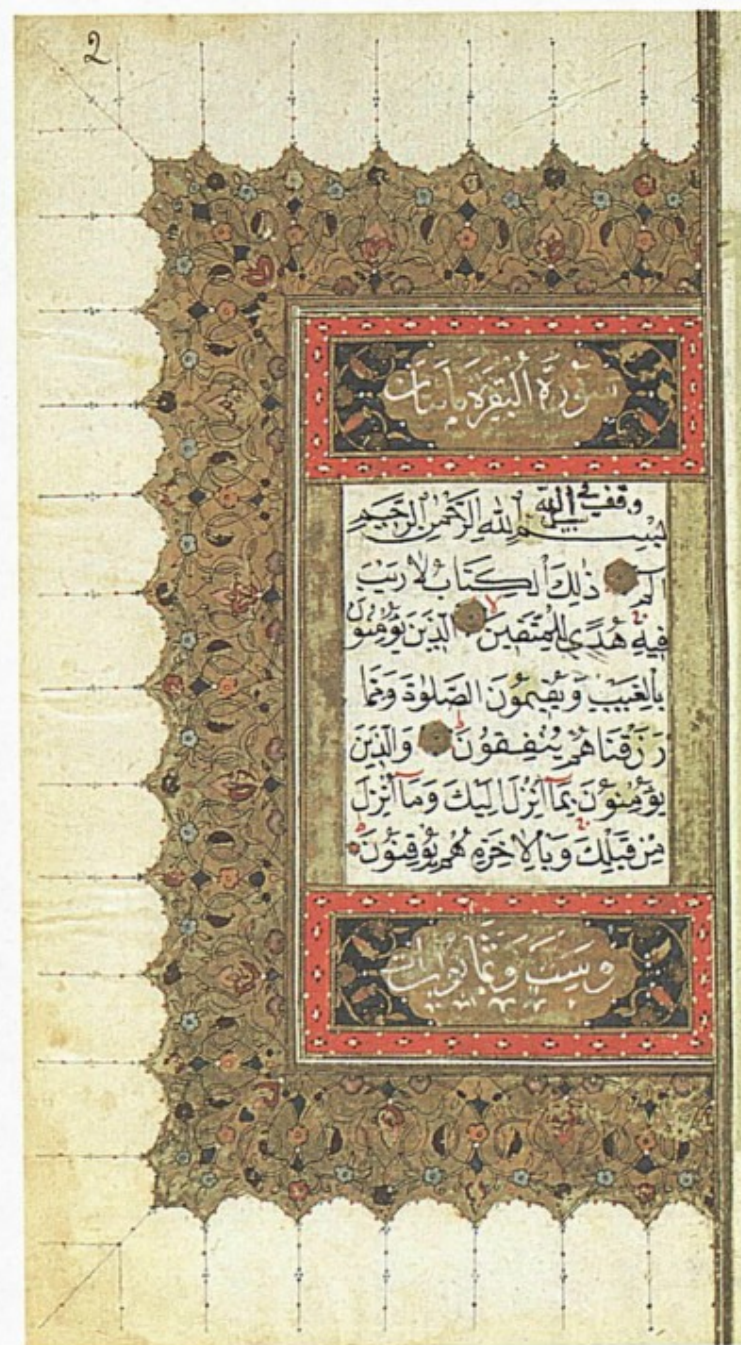 2
سُورَةُ البَقَرَةِ مِائتَانِ
وقف في سبيل الله
بِسْمِ اللهِ الرَّحْمٰنِ الرَّحِيمِ
الٓمٓ ذٰلِكَ الْكِتَابُ لَا رَيْبَ
فِيهِ هُدًى لِلْمُتَّقِينَ الَّذِينَ يُؤْمِنُونَ
بِالْغَيْبِ وَيُقِيمُونَ الصَّلٰوةَ وَمِمَّا
رَزَقْنَاهُمْ يُنْفِقُونَ وَالَّذِينَ
يُؤْمِنُونَ بِمَٓا اُنْزِلَ اِلَيْكَ وَمَٓا اُنْزِلَ
مِنْ قَبْلِكَ وَبِالْاٰخِرَةِ هُمْ يُوقِنُونَ
وَسِتٌّ وَثَمَانُونَ ايات